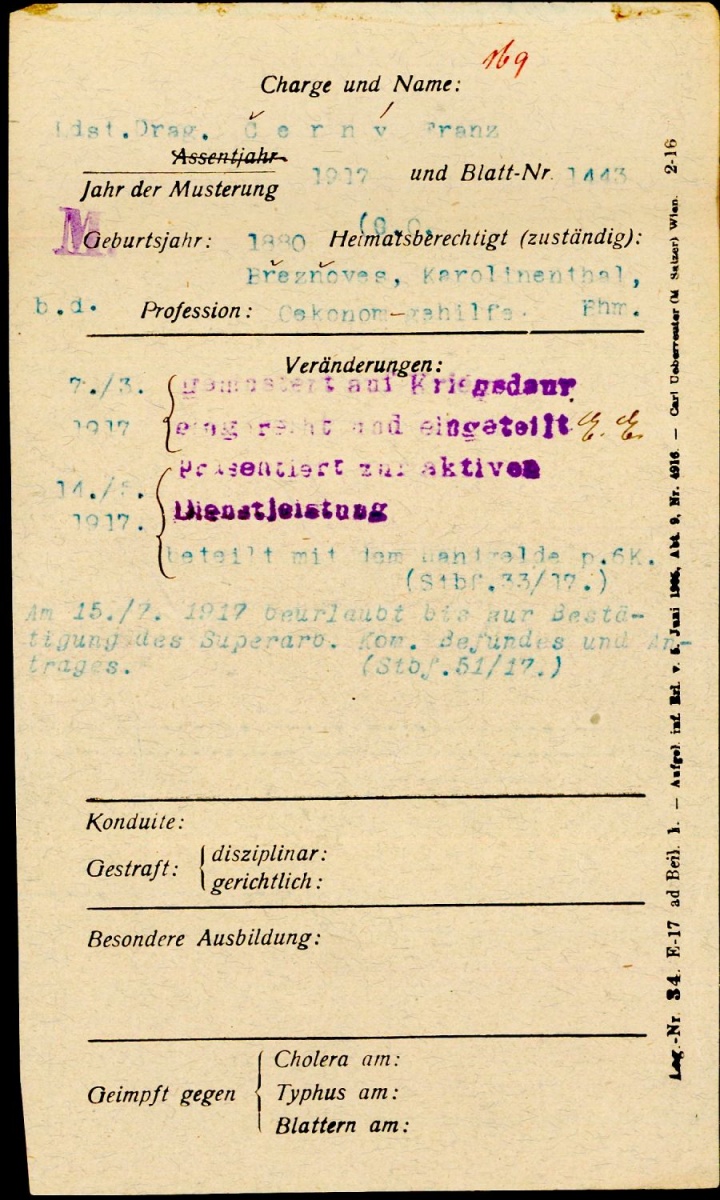 169
Charge und Name:
Ldst.Drag. Černý Franz
Assentjahr
Jahr der Musterung 1917 und Blatt-Nr. 1443
M
Geburtsjahr: 1880 Heimatsberechtigt (zuständig):
Březňoves, Karolinenthal,
b.d. Profession: Oekonom-gehilfe. Bhm.
Veränderungen:
7./3. gemustert auf Kriegsdaur
1917 eingereiht und eingeteilt
Präsentiert zur aktiven
14./
1917. Dienstleistung
beteilt mit dem p.6K.
(Stbf.33/17.)
Am 15./7. 1917 beurlaubt bis zur Bestä-
tigung des Superarb. Kom. Befundes und An-
trages. (Stbf.51/17.)
Konduite:
Gestraft: disziplinar:
gerichtlich:
Besondere Ausbildung:
Geimpft gegen Cholera am:
Typhus am:
Blattern am:
Lag.-Nr. 34. E-17 ad Beil. 1. — Aufgel. inf. Erl. v. 5. Juni 1905, Abt. 9, Nr. 4916. — Carl Ueberreuter (M. Salzer) Wien. 2-16